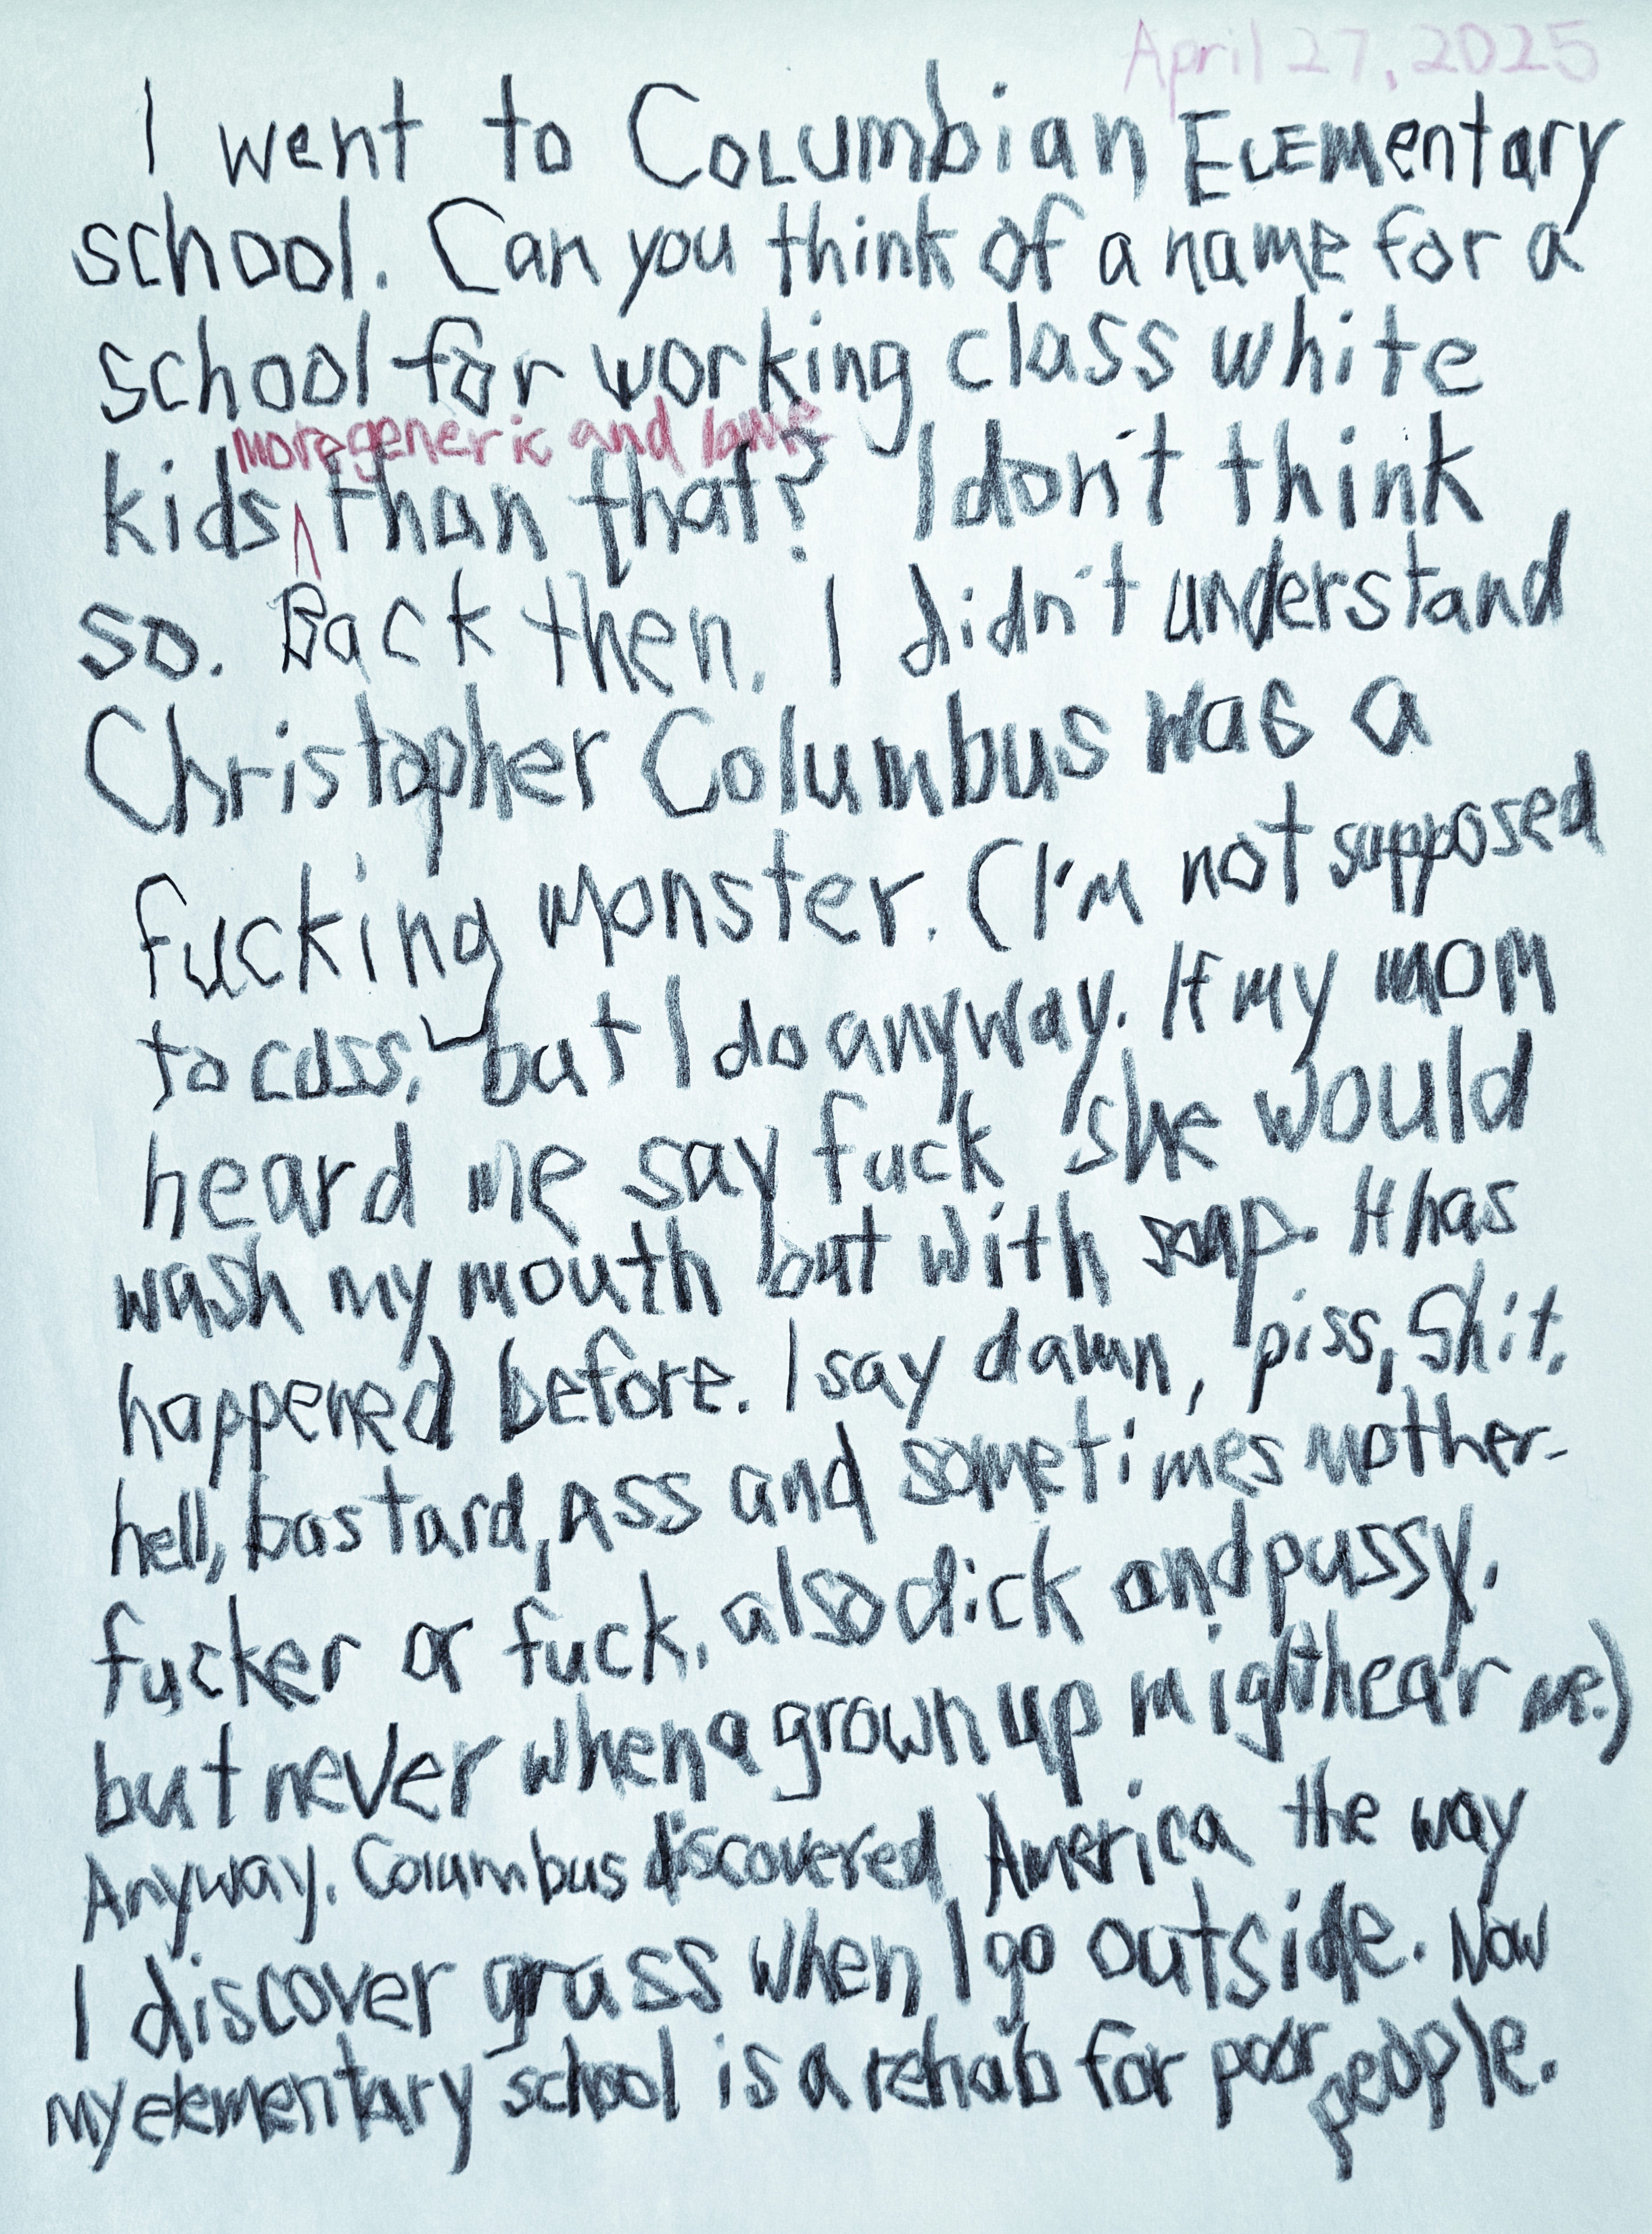 April 27, 2025
I went to Columbian Elementary
school. Can you think of a name for a
school for working class white
more generic and lame
kids ^ than that? I don't think
so. Back then, I didn't understand
Christopher Columbus was a
fucking monster. (I'm not supposed
to cuss, but I do anyway. If my mom
heard me say fuck she would
wash my mouth out with soap. It has
happened before. I say damn, piss, shit,
hell, bastard, ass and sometimes mother-
fucker or fuck, also dick and pussy,
but never when a grown up might hear me.)
Anyway. Columbus discovered America the way
I discover grass when I go outside. Now
my elementary school is a rehab for poor people.